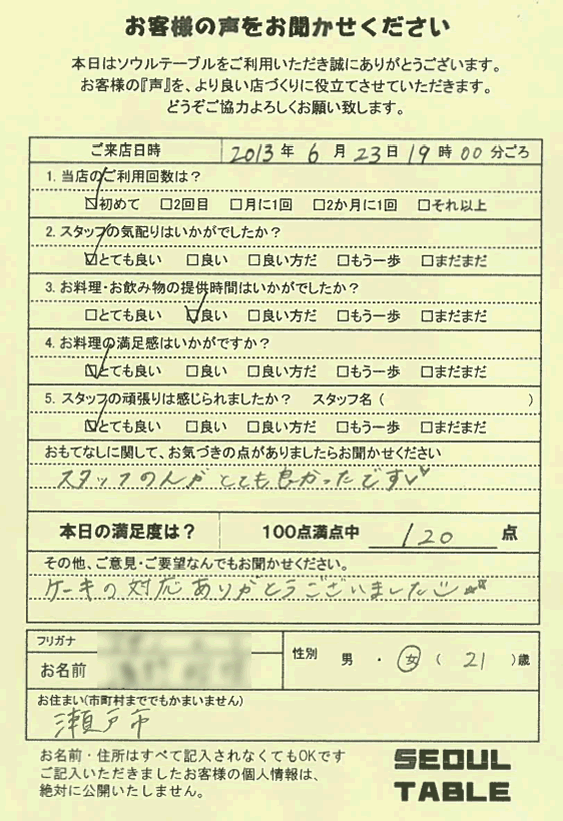 お客様の声をお聞かせください
本日はソウルテーブルをご利用いただき誠にありがとうございます。
お客様の『声』を、より良い店づくりに役立てさせていただきます。
どうぞご協力よろしくお願い致します。
ご来店日時 2013年 6月 23日 19時 00分ごろ
1. 当店のご利用回数は？
☑初めて □2回目 □月に1回 □2か月に1回 □それ以上
2. スタッフの気配りはいかがでしたか？
☑とても良い □良い □良い方だ □もう一歩 □まだまだ
3. お料理・お飲み物の提供時間はいかがでしたか？
□とても良い ☑良い □良い方だ □もう一歩 □まだまだ
4. お料理の満足感はいかがですか？
☑とても良い □良い □良い方だ □もう一歩 □まだまだ
5. スタッフの頑張りは感じられましたか？ スタッフ名（ ）
☑とても良い □良い □良い方だ □もう一歩 □まだまだ
おもてなしに関して、お気づきの点がありましたらお聞かせください
スタッフの人がとても良かったです
本日の満足度は？ 100点満点中 120 点
その他、ご意見・ご要望なんでもお聞かせください。
ケーキの対応ありがとうございました
フリガナ
お名前
性別 男 ・ 女 （ 21 ）歳
お住まい(市町村まででもかまいません)
瀬戸市
お名前・住所はすべて記入されなくてもOKです
ご記入いただきましたお客様の個人情報は、
絶対に公開いたしません。
SEOUL
TABLE